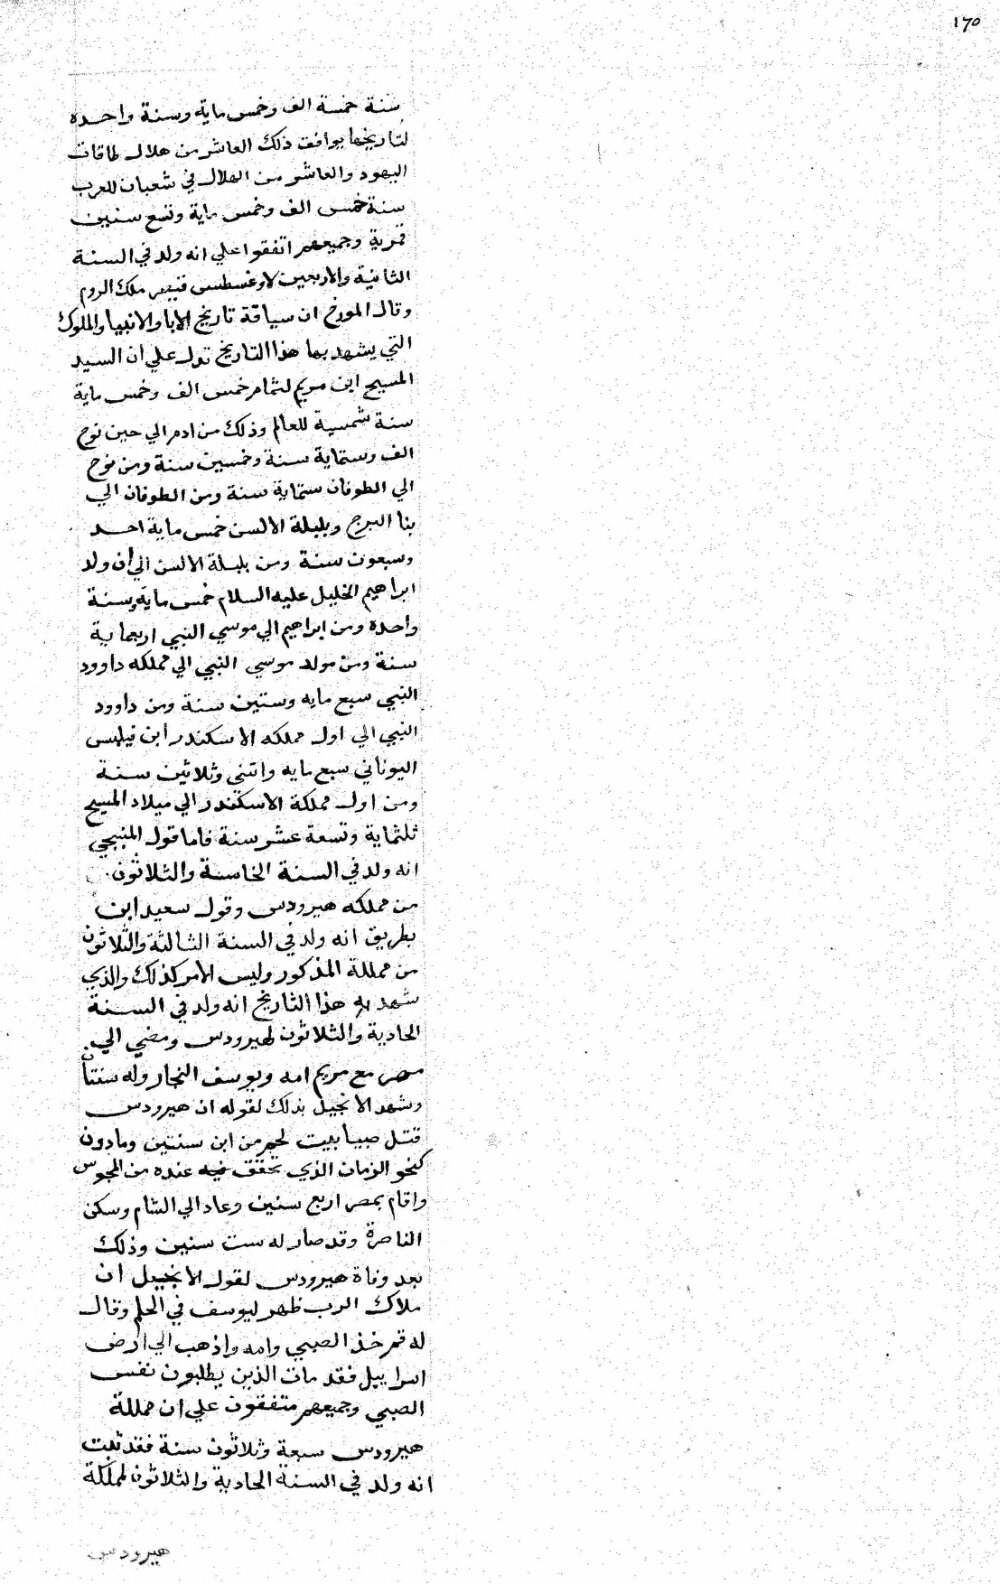 ١٧٥
سنة خمسة الف وخمس مايه وسنة واحده
لتاريخها يوافق ذلك العاشر من هلال طاقات
اليهود والعاشر من الهلال في شعبان للعرب
سنة خمس الف وخمس ماية وتسع سنين
قمرية وجميعهم اتفقوا علي انه ولد في السنة
الثانية والاربعين لاوغسطس قيصر ملك الروم
وقال المورخ ان سياقة تاريخ الابا والانبيا والملوك
التي يشهد بها هذا التاريخ تدل علي ان السيد
المسيح ابن مريم لتمام خمس الف وخمس ماية
سنة شمسية للعالم وذلك من ادم الي حين نوح
الف وستماية سنة وخمسين سنة ومن نوح
الي الطوفان ستماية سنة ومن الطوفان الي
بنا البرج وبلبلة الالسن خمس ماية احد
وسبعون سنة ومن بلبلة الالسن الي ان ولد
ابراهيم الخليل عليه السلام خمس مايه وسنة
واحده ومن ابراهيم الي موسي النبي اربعماية
سنة ومن مولد موسي النبي الي مملكه داوود
النبي سبع مايه وستين سنة ومن داوود
النبي الي اول مملكه الاسكندر ابن فيلبس
اليوناني سبع مايه واثني وثلاثين سنة
ومن اول مملكة الاسكندر الي ميلاد المسيح
ثلثماية وتسعة عشر سنة فاما قول المنبجي
انه ولد في السنة الخامسة والثلاثون
من مملكه هيرودس وقول سعيد ابن
بطريق انه ولد في السنة الثالثة والثلاثون
من مملكة المذكور وليس الامر كذلك والذي
شهد به هذا التاريخ انه ولد في السنة
الحادية والثلاثون لهيرودس ومضي الي
مصر مع مريم امه ويوسف النجار وله سنتان
وشهد الانجيل بذلك لقوله ان هيرودس
قتل صبيا بيت لحم من ابن سنتين ومادون
كنحو الزمان الذي تحقق فيه عنده من المجوس
واقام بمصر اربع سنين وعاد الي الشام وسكن
الناصرة وقد صار له ست سنين وذلك
بعد وفاة هيرودس لقول الانجيل ان
ملاك الرب ظهر ليوسف في الحلم وقال
له قم خذ الصبي وامه واذهب الي ارض
اسراييل فقد مات الذين يطلبون نفس
الصبي وجميعهم متفقون علي ان مملكة
هيرودس سبعة وثلاثون سنة فقد ثبت
انه ولد في السنة الحادية والثلاثون لمملكة
هيرودس